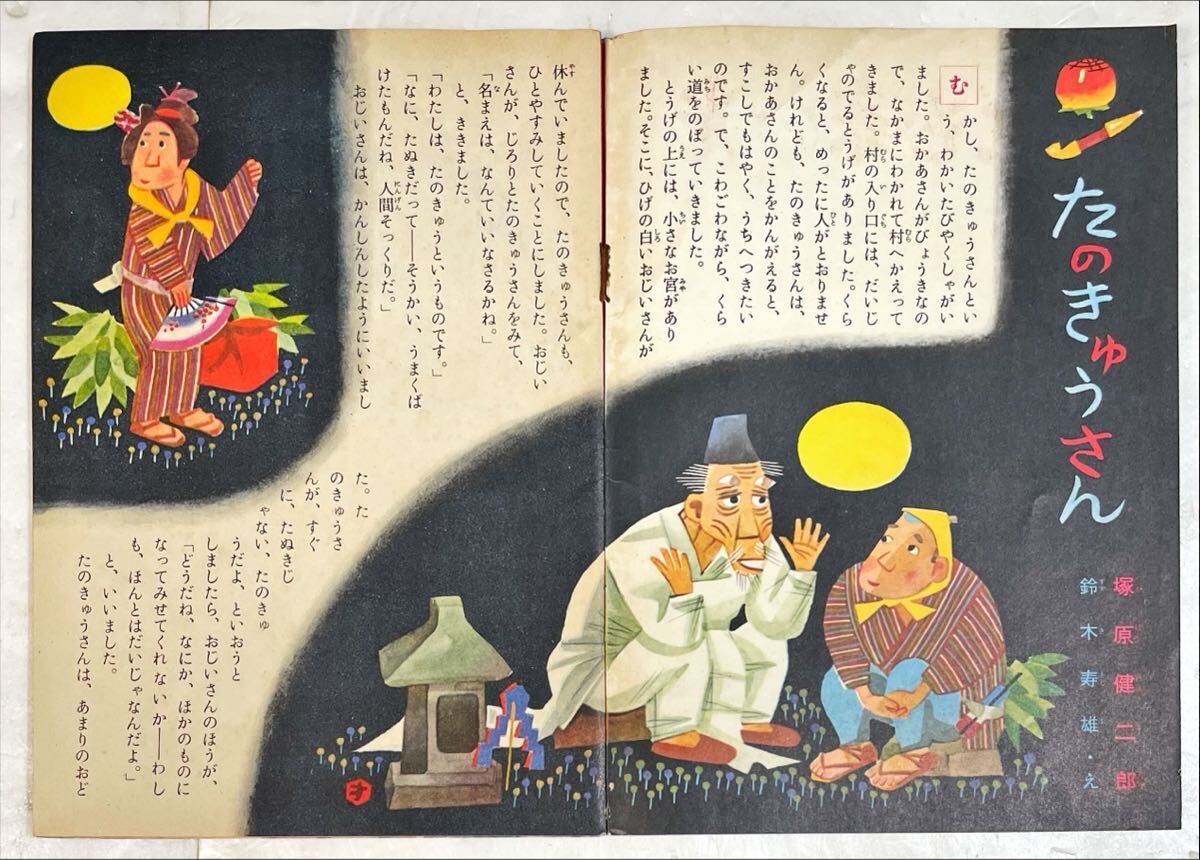 たのきゅうさん
塚原健二郎
鈴木寿雄・え
むかし、たのきゅうさんとい
う、わかいたびやくしゃがい
ました。おかあさんがびょうきなの
で、なかまにわかれて村へかえって
きました。村の入り口には、だいじ
ゃのでるとうげがありました。くら
くなると、めったに人がとおりませ
ん。けれども、たのきゅうさんは、
おかあさんのことをかんがえると、
すこしでもはやく、うちへつきたい
のです。で、こわごわながら、くら
い道をのぼっていきました。
とうげの上には、小さなお宮があり
ました。そこに、ひげの白いおじいさんが
休んでいましたので、たのきゅうさんも、
ひとやすみしていくことにしました。おじい
さんが、じろりとたのきゅうさんをみて、
「名まえは、なんていいなさるかね。」
と、ききました。
「わたしは、たのきゅうというものです。」
「なに、たぬきだって――そうかい、うまくば
けたもんだね、人間そっくりだ。」
おじいさんは、かんしんしたようにいいまし
た。た
のきゅうさ
んが、すぐ
に、たぬきじ
ゃない、たのきゅ
うだよ、といおうと
しましたら、おじいさんのほうが、
「どうだね、なにか、ほかのものに
なってみせてくれないか――わし
も、ほんとはだいじゃなんだよ。」
と、いいました。
たのきゅうさんは、あまりのおど